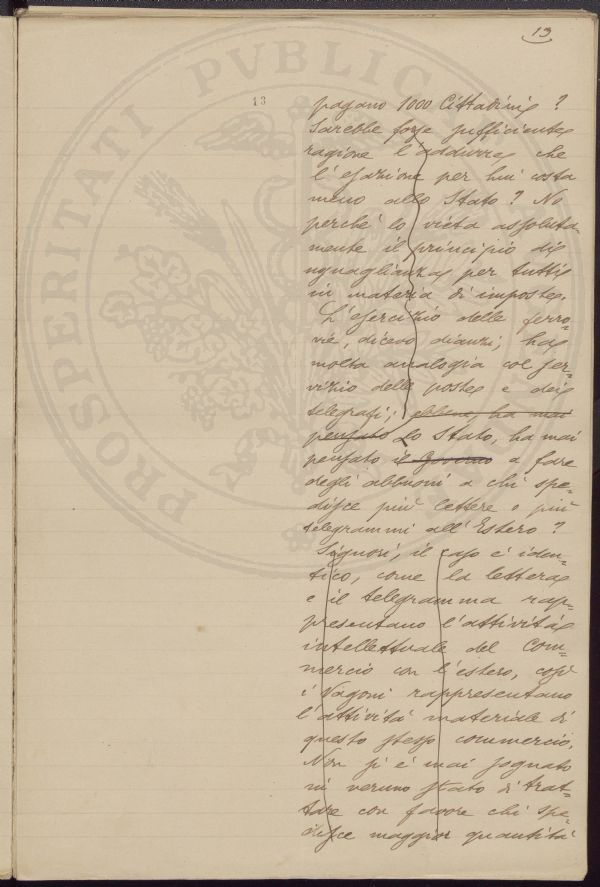 13
13
PROSPERITATI PVBLICAE
pagano 1000 Cittadini?
Sarebbe forse sufficiente
ragione l'addurre che
l'esazione per lui costa
meno allo Stato? No
perchè lo vieta assoluta
mente il principio di
uguaglianza per tutti
in materia di imposte.
L'esercizio delle ferro-
vie, dicevo dianzi, ha
molta analogia col ser-
vizio delle poste e dei
telegrafi; ebbene, ha mai
pensato lo Stato, ha mai
pensato il Governo a fare
degli abbuoni a chi spe-
disce più lettere o più
telegrammi all'Estero?
Signori, il caso è iden-
tico, come la lettera
e il telegramma rap-
presentano l'attività
intellettuale del Com-
mercio con l'estero, così
i Vagoni rappresentano
l'attività materiale di
questo stesso commercio.
Non si è mai sognato
in veruno Stato di trat-
tare con favore chi spe-
disce maggior quantità